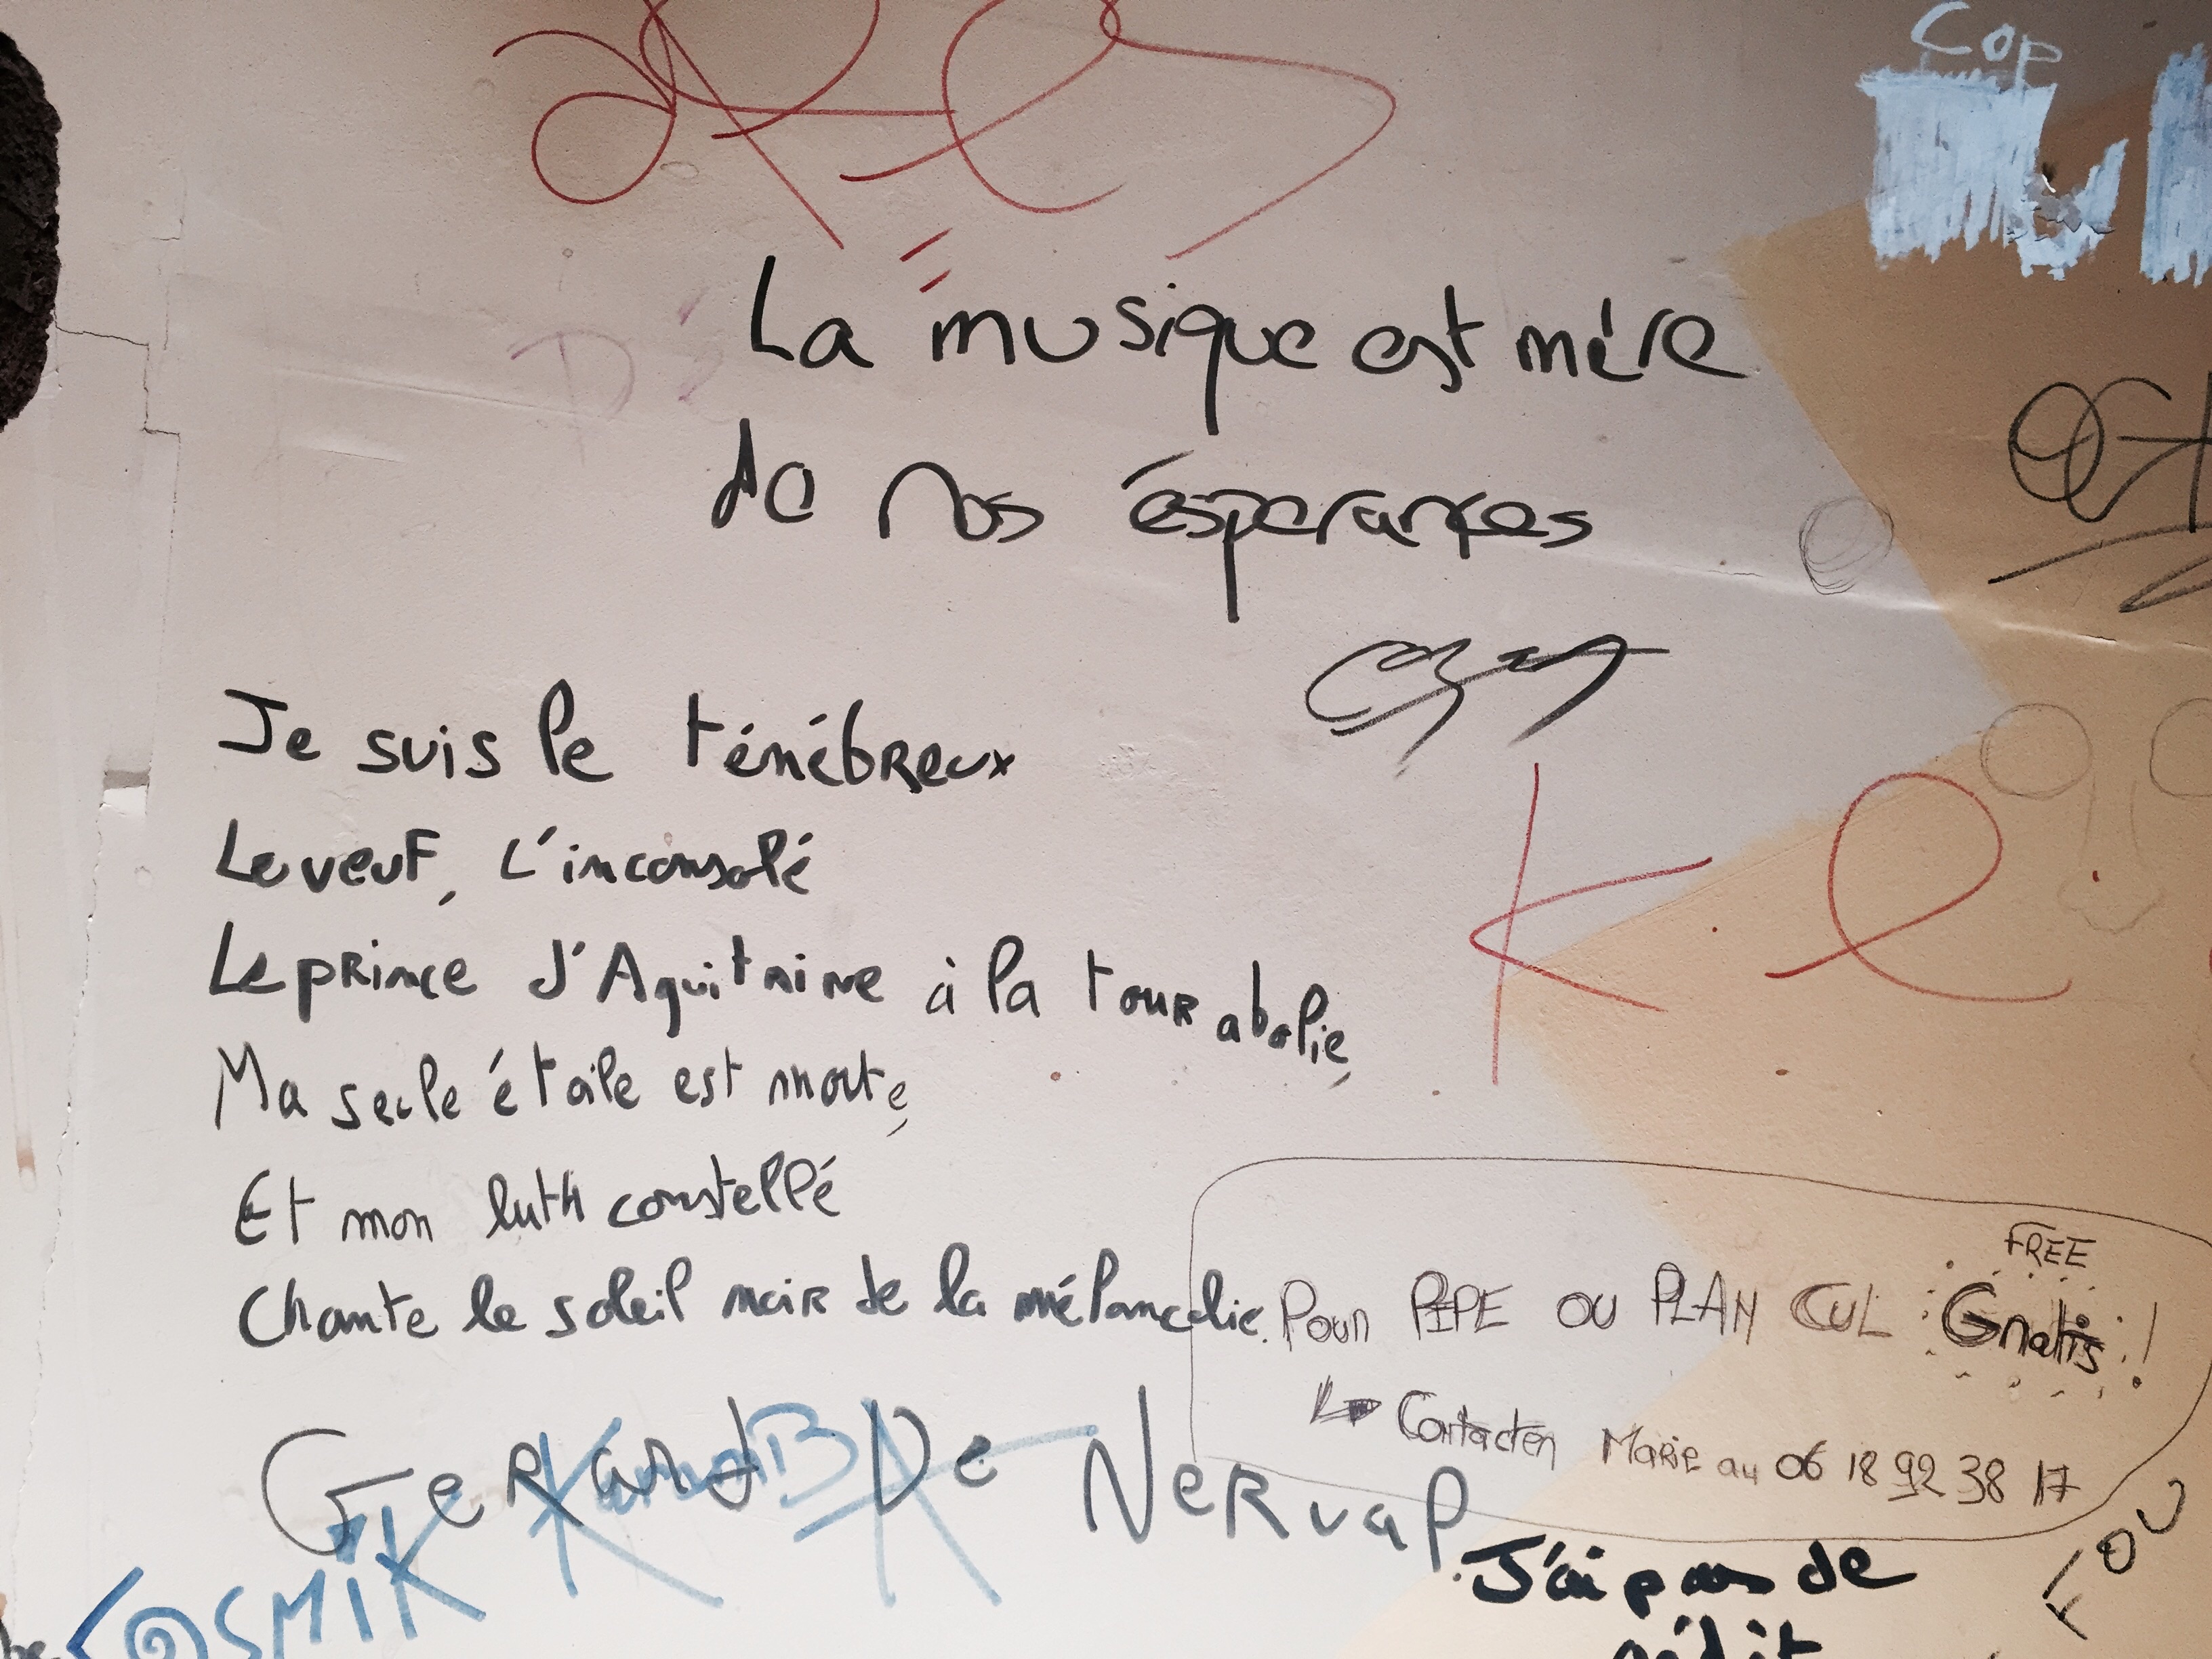 Cop
La musique est mère
de nos ésperances
Je suis le ténébreux
Le veuf, L'inconsolé
Le prince d'Aquitaine à la tour abolie,
Ma seule étoile est morte,
Et mon luth constellé
Chante le soleil noir de la mélancolie.
Gerard De Nerval.
K e
FREE
Pour PIPE OU PLAN CUL Gratis !
Contacter Marie au 06 18 92 38 17
COSMIK
J'ai pas de
FOU